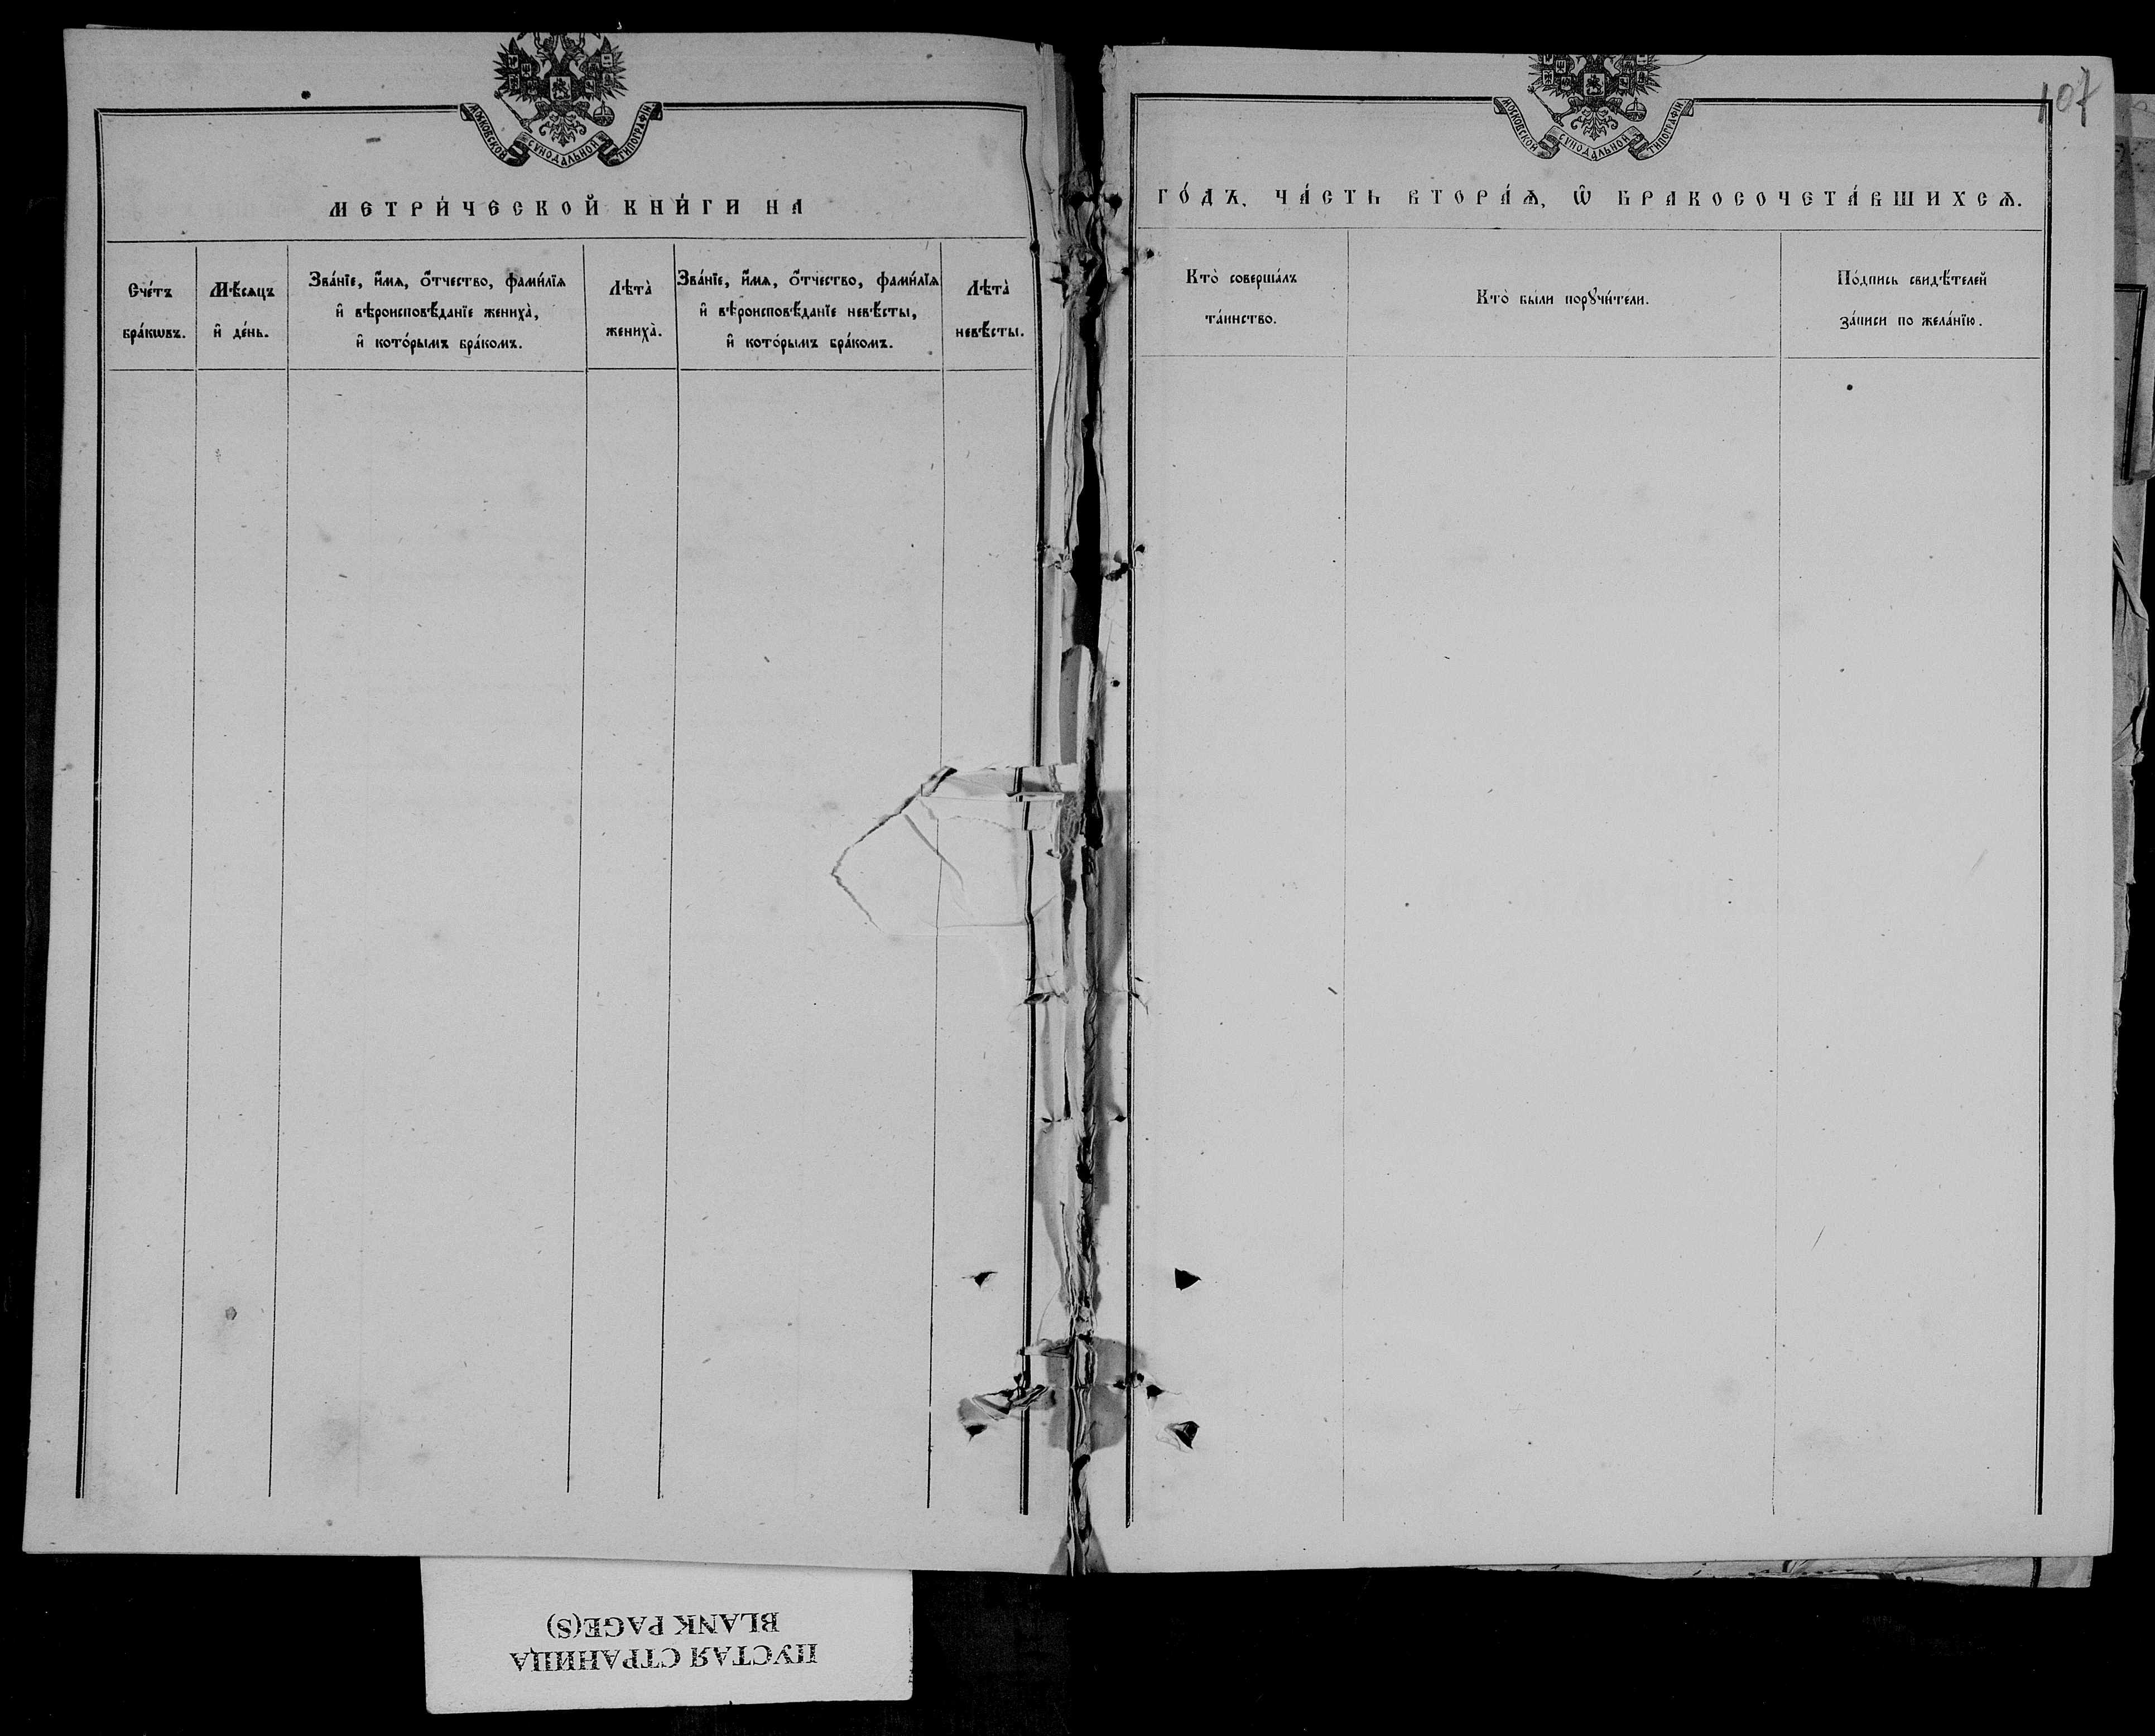 МОСКОВСКОЙ СѴНОДАЛЬНОЙ ТИПОГРАФІИ
МЕТРИ́ЧЕСКОЙ КНИ́ГИ НА
Сче́тъ
бра́кѡвъ.
Мѣ́сяцъ
и҆ де́нь.
Зва́нїе, и҆́мѧ, ѻ҆́тчество, фами́лїѧ
и҆ вѣроисповѣ́данїе жениха̀,
и҆ кото́рымъ бра́комъ.
Лѣта̀
жениха̀.
Зва́нїе, и҆́мѧ, ѻ҆́тчество, фами́лїѧ
и҆ вѣроисповѣ́данїе невѣ́сты,
и҆ кото́рымъ бра́комъ.
Лѣта̀
невѣ́сты.
107
МОСКОВСКОЙ СѴНОДАЛЬНОЙ ТИПОГРАФІИ
ГО́ДЪ, ЧА́СТЬ ВТОРА́Ѧ, Ѽ БРАКОСОЧЕТА́ВШИХСѦ.
Кто̀ соверша́лъ
та́инство.
Кто̀ бы́ли порꙋчи́тели.
По́дпись свидѣ́телей
за́писи по жела́нїю.
ПУСТАЯ СТРАНИЦА
BLANK PAGE(S)